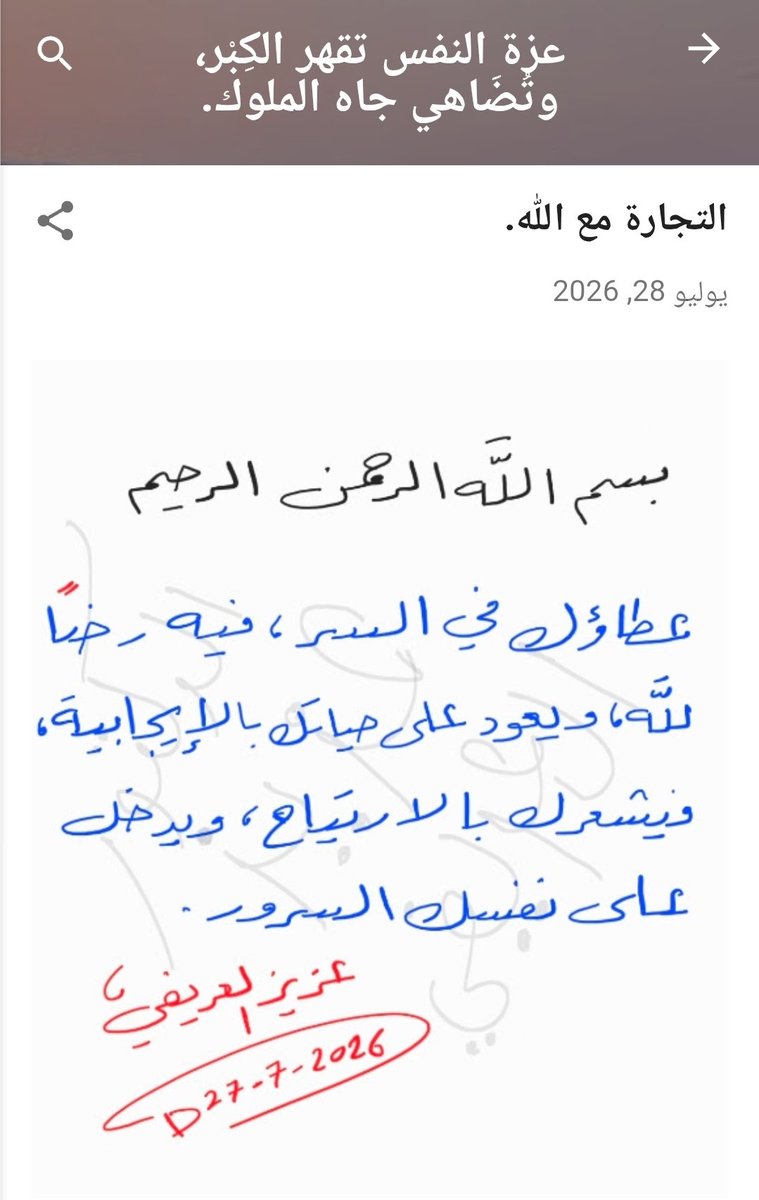 عزة النفس تقهر الكِبْر،
وتُضَاهي جاه الملوك.
التجارة مع الله.
يوليو 28, 2026
بسم اللَّه الرحمن الرحيم
عطاؤك في السر، فيه رضاً
للَّه، ويعود على حياتك بالإيجابية،
فيشعرك بالارتياح، ويدخل
على نفسك السرور.
عزيز العريفي
D 27-7-2026